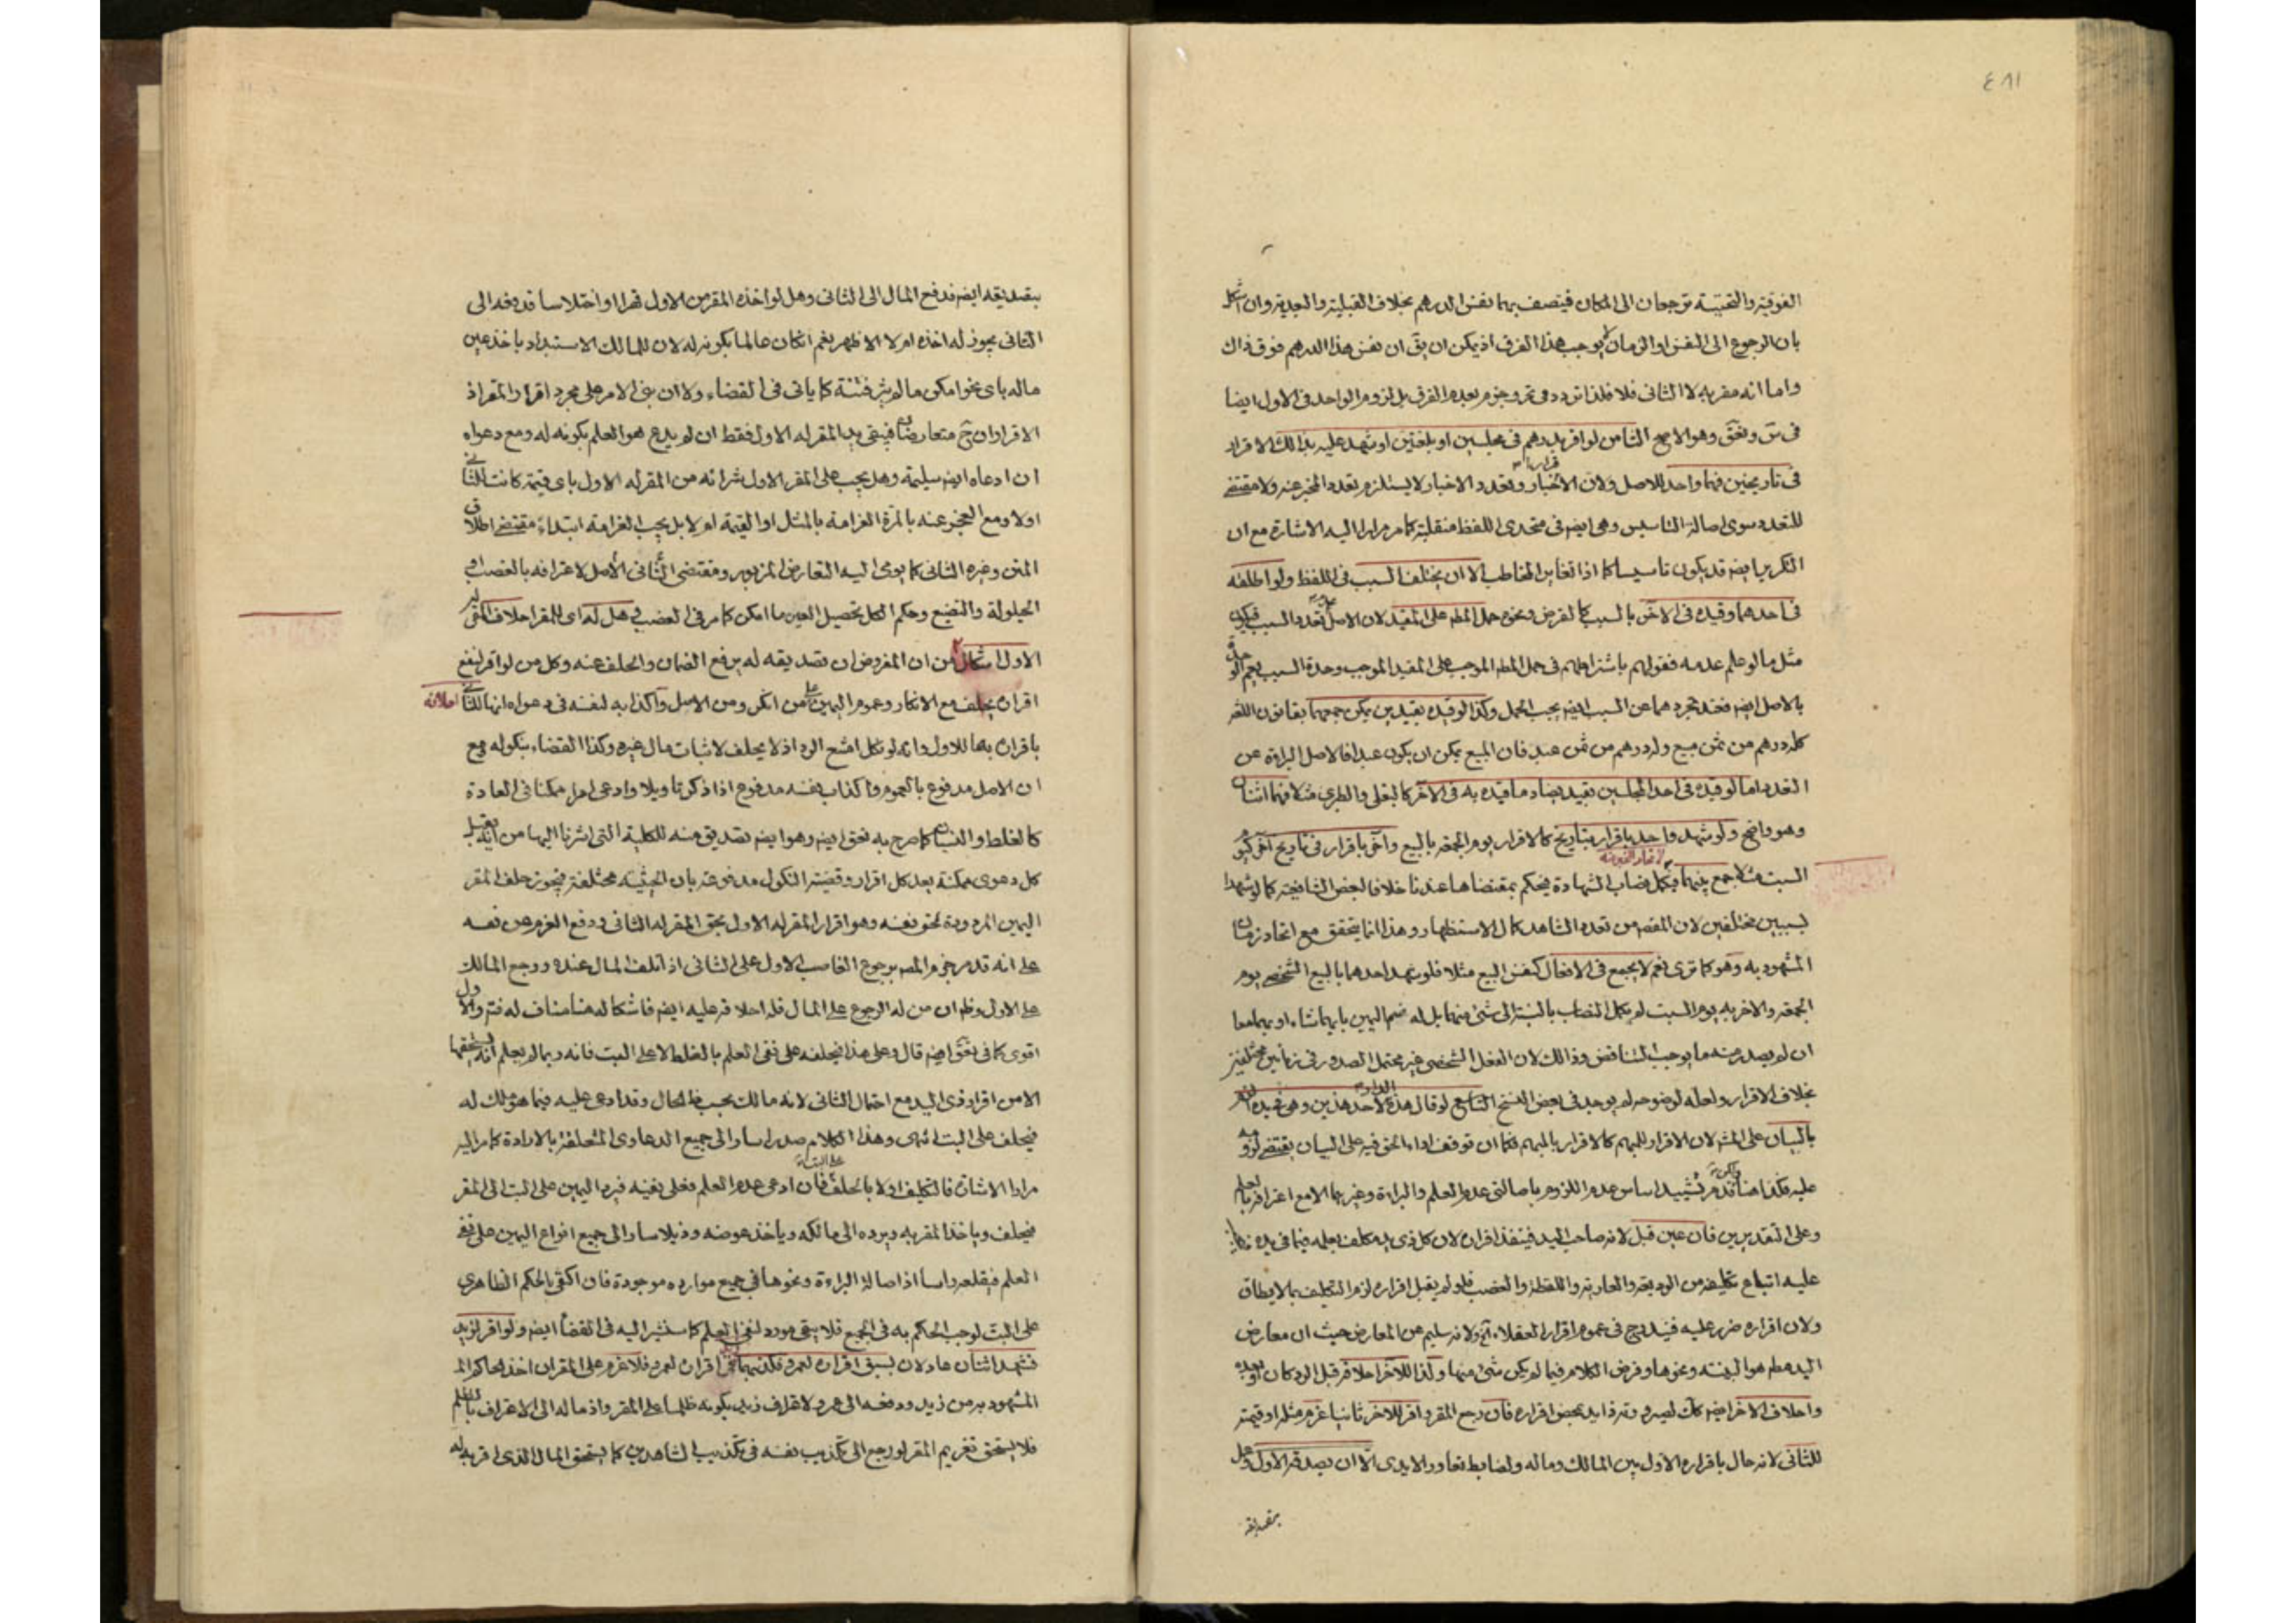 ٤٨١
الفوقية والتحتية ترجعان الى المكان فيتصف بهما نفس الدرهم بخلاف القبلية والبعدية وان اشكل
بان الرجوع الى النفس او الزمان لا يوجب هذا الفرق اذ يمكن ان يق ان نفس هذا الدرهم فوق ذاك
واما انه مقر به لا الثانى فلا فلذا تردد فى وجزم بعدم الفرق بل لزوم الواحد فى الاول ايضا
فى وهو الاصح الثامن لو اقر بدرهم فى مجلسين او بلغتين او شهد عليه بذالك الاقرار
فى تاريخين فهما واحد للاصل ولان الاخبار وتعدد الاخبار لا يستلزم تعدد المخبر عنه ولا مقتضى
للتعدد سوى اصالة التاسيس وهى ايضا فى متحدى اللفظ منقلبة كما مر مرارا اليه الاشارة مع ان
التكرير ايضا قد يكون تاسيسا كما اذا تغاير المخاطب الا ان يختلف السبب فى اللفظ ولو اطلقه
فى احدهما وقيده فى الاخر بالسبب كالقرض ونحوه حمل المط على المقيد لان الاصل عدم تعدد السبب فيكون
مثل ما لو علم عدمه فقولهم باشتراطهم فى حمل المط الموجب على المقيد الموجب وحدة السبب يعم الوحدة
بالاصل ايضا فعند تجردهما عن السبب ايضا يجب الحمل وكذا لو قيده بقيدين يمكن جمعهما بقانون اللغة
كله درهم من ثمن مبيع وله درهم من ثمن عبد فان المبيع يمكن ان يكون عبدا فالاصل البراءة عن
التعدد اما لو قيده فى احد المجلسين بقيد يضاد ما قيده به فى الآخر كالبغلى والطبرى مثلا فهما اثنان
وهو واضح ولو شهد واحد باقرار بتاريخ كالاقرار يوم الجمعة بالبيع وآخر باقرار فى تاريخ آخر كيوم
السبت مثلا جمع بينهما فيكمل نصاب الشهادة فيحكم بمقتضاها عندنا خلافا لبعض الشافعية كما لو شهدا
بسببين مختلفين لان المقصد من تعدد الشاهد كمال الاستظهار وهذا انما يتحقق مع اتحاد زمان
المشهود به وهو كما ترى نعم لا يجمع فى الافعال كنفس البيع مثلا فلو شهد احدهما بالبيع الشخصى يوم
الجمعة والاخر به يوم السبت لم يكمل النصاب بالنسبة الى شئ منهما بل له ضم اليمين بايهما شاء او بهما معا
ان لم يصدر منه ما يوجب التناقض وذالك لان الفعل الشخصى غير محتمل الصدور فى زمانين مختلفين
بخلاف الاقرار ولعله لوضوحه لم يوجد فى بعض النسخ التاسع لو قال هذه الدار لاحد هذين وهى فى يده الزم
بالبيان على المش لان الاقرار للمبهم كالاقرار بالمبهم فكما ان توقف اداء الحق فيه على البيان يقتضى لزومه
عليه فكذا هنا ولكن قد مر تشييد اساس عدم اللزوم باصالتى عدم العلم والبراءة وغيرهما الا مع اعترافه بالعلم
وعلى التقديرين فان عين قبل لانه صاحب اليد فينفذ اقراره لان كل ذى يد مكلف بعلمه فيما فى يده
عليه اتباع تكليفه من الوديعة والعارية واللقطة والغصب فلو لم يقبل اقراره لزم التكليف بما لا يطاق
ولان اقراره ضرر عليه فيندرج فى عموم اقرار العقلاء آه ولانه سليم عن المعارض حيث ان معارض
اليد هو البينة ونحوها وفرض الكلام فيما لم يكن شئ منها وكذا للاخر احلافه قبل الرد كان او بعده
واحلاف الاخر ايضا كك لصيرورته ذا يد بمحض اقراره فان رجع المقر واقر للاخر ثانيا غرم مثله او قيمته
للثانى لانه حال باقراره الاول بين المالك وماله ولضابط تعاور الايدى الا ان يصدقه الاول وهل
بتصديقه
بتصديقه ايضا فدفع المال الى الثانى وهل لو اخذه المقر من الاول قهرا او اختلاسا قد دفعه الى
الثانى يجوز له اخذه ام لا الاظهر نعم ان كان عالما بكونه له لان للمالك الاستبداد باخذ عين
ماله باى نحو امكن ما لم يثر فتنة كما ياتى فى القضاء ولا ان بنى الامر على مجرد اقرار المقر اذ
الاقراران ح متعارضان فيبقى يد المقر له الاول فقط ان لم يدع هو العلم بكونه له ومع دعواه
ان ادعاه ايضا سليمة وهل يجب على المقر الاول شرائه من المقر له الاول باى قيمة كانت للثانى
اولا ومع العجز عنه بالمرة الغرامة بالمثل او القيمة ام لا بل يجب الغرامة ابتداء مقتضى اطلاق
المتن وغيره الثانى كما يومى اليه التعارض المزبور ومقتضى الثانى الاول لاعترافه بالغصب او
الحيلولة والتضيع وحكم الكل تحصيل العين ما امكن كما مر فى الغصب وهل له اى للمقر احلاف المقر له
الاول اشكال من ان المفروض ان تصديقه له يرفع الضمان والحلف عنه وكل من لو اقر لنفع
اقراره يحلف مع الانكار وعموم اليمين على من انكر ومن الاصل واكذابه لنفسه فى دعواه انها للثانى
احلافه
باقراره بها للاول وانه لو نكل امتنع الرد اذ لا يحلف لاثبات مال غيره وكذا القضاء بنكوله مع
ان الاصل مدفوع بالعموم واكذاب نفسه مدفوع اذا ذكر تاويلا وادعى امرا ممكنا فى العادة
كالغلط والنسيان كما صرح به ايضا وهو ايضا تصديق منه للكلية التى اشرنا اليها من انه يقبل
كل دعوى ممكنة بعد كل اقرار وقضية النكول مدفوعة بان الحيثية مختلفة فيجوز حلف المقر
اليمين المردودة لحق نفسه وهو اقرار المقر له الاول بحق المقر له الثانى ودفع الغرم عن نفسه
على انه قد مر جزم المص برجوع الغاصب الاول على الثانى اذ اتلف المال عنده ورجع المالك
على الاول وظ ان من له الرجوع على المال فله احلافه عليه ايضا فاشكاله هنا مناف له فتم والاول
اقوى كما فى ايضا قال وعلى هذا فيحلفه على نفى العلم بالغلط لا على البت فانه ربما لم يعلم انه يستحقها
الا من اقرار ذى اليد مع احتمال الثانى لانه مالك بحسب ظ الحال وقد ادعى عليه فيما هو ملك له
فيحلف على البت انتهى وهذا الكلام صدر اساو الى جميع الدعاوى المتعلقة بالارادة كما مر اليه
مرارا الاشارة فالتكليف اولا بالحلف على البت فان ادعى عدم العلم فعلى نفيه فيرد اليمين على البت الى المقر
فيحلف وياخذ المقر به ويرده الى مالكه وياخذ عوضه وذيلا سار الى جميع انواع اليمين على نفى
العلم فيقلعه راسا اذ اصالة البراءة ونحوها فى جميع موارده موجودة فان اكتفى بالحكم الظاهرى
على البت لوجب الحكم به فى الجميع فلا يبقى مورد لنفى العلم كما سنشير اليه فى القضا ايضا ولو اقر لزيد
فشهد اثنان عادلان بسبق اقراره لعمرو فكذبهما اقراره لعمرو فلا غرم على المقر ان اخذ الحاكم
المشهود به من زيد ودفعه الى عمرو لاعتراف زيد بكونه ظلما على المقر واذ ماله الى الاعتراف بالظلم
فلا يستحق تغريم المقر لو رجع الى تكذيب نفسه فى تكذيب الشاهدين كما يستحق المال الذى اقر به له